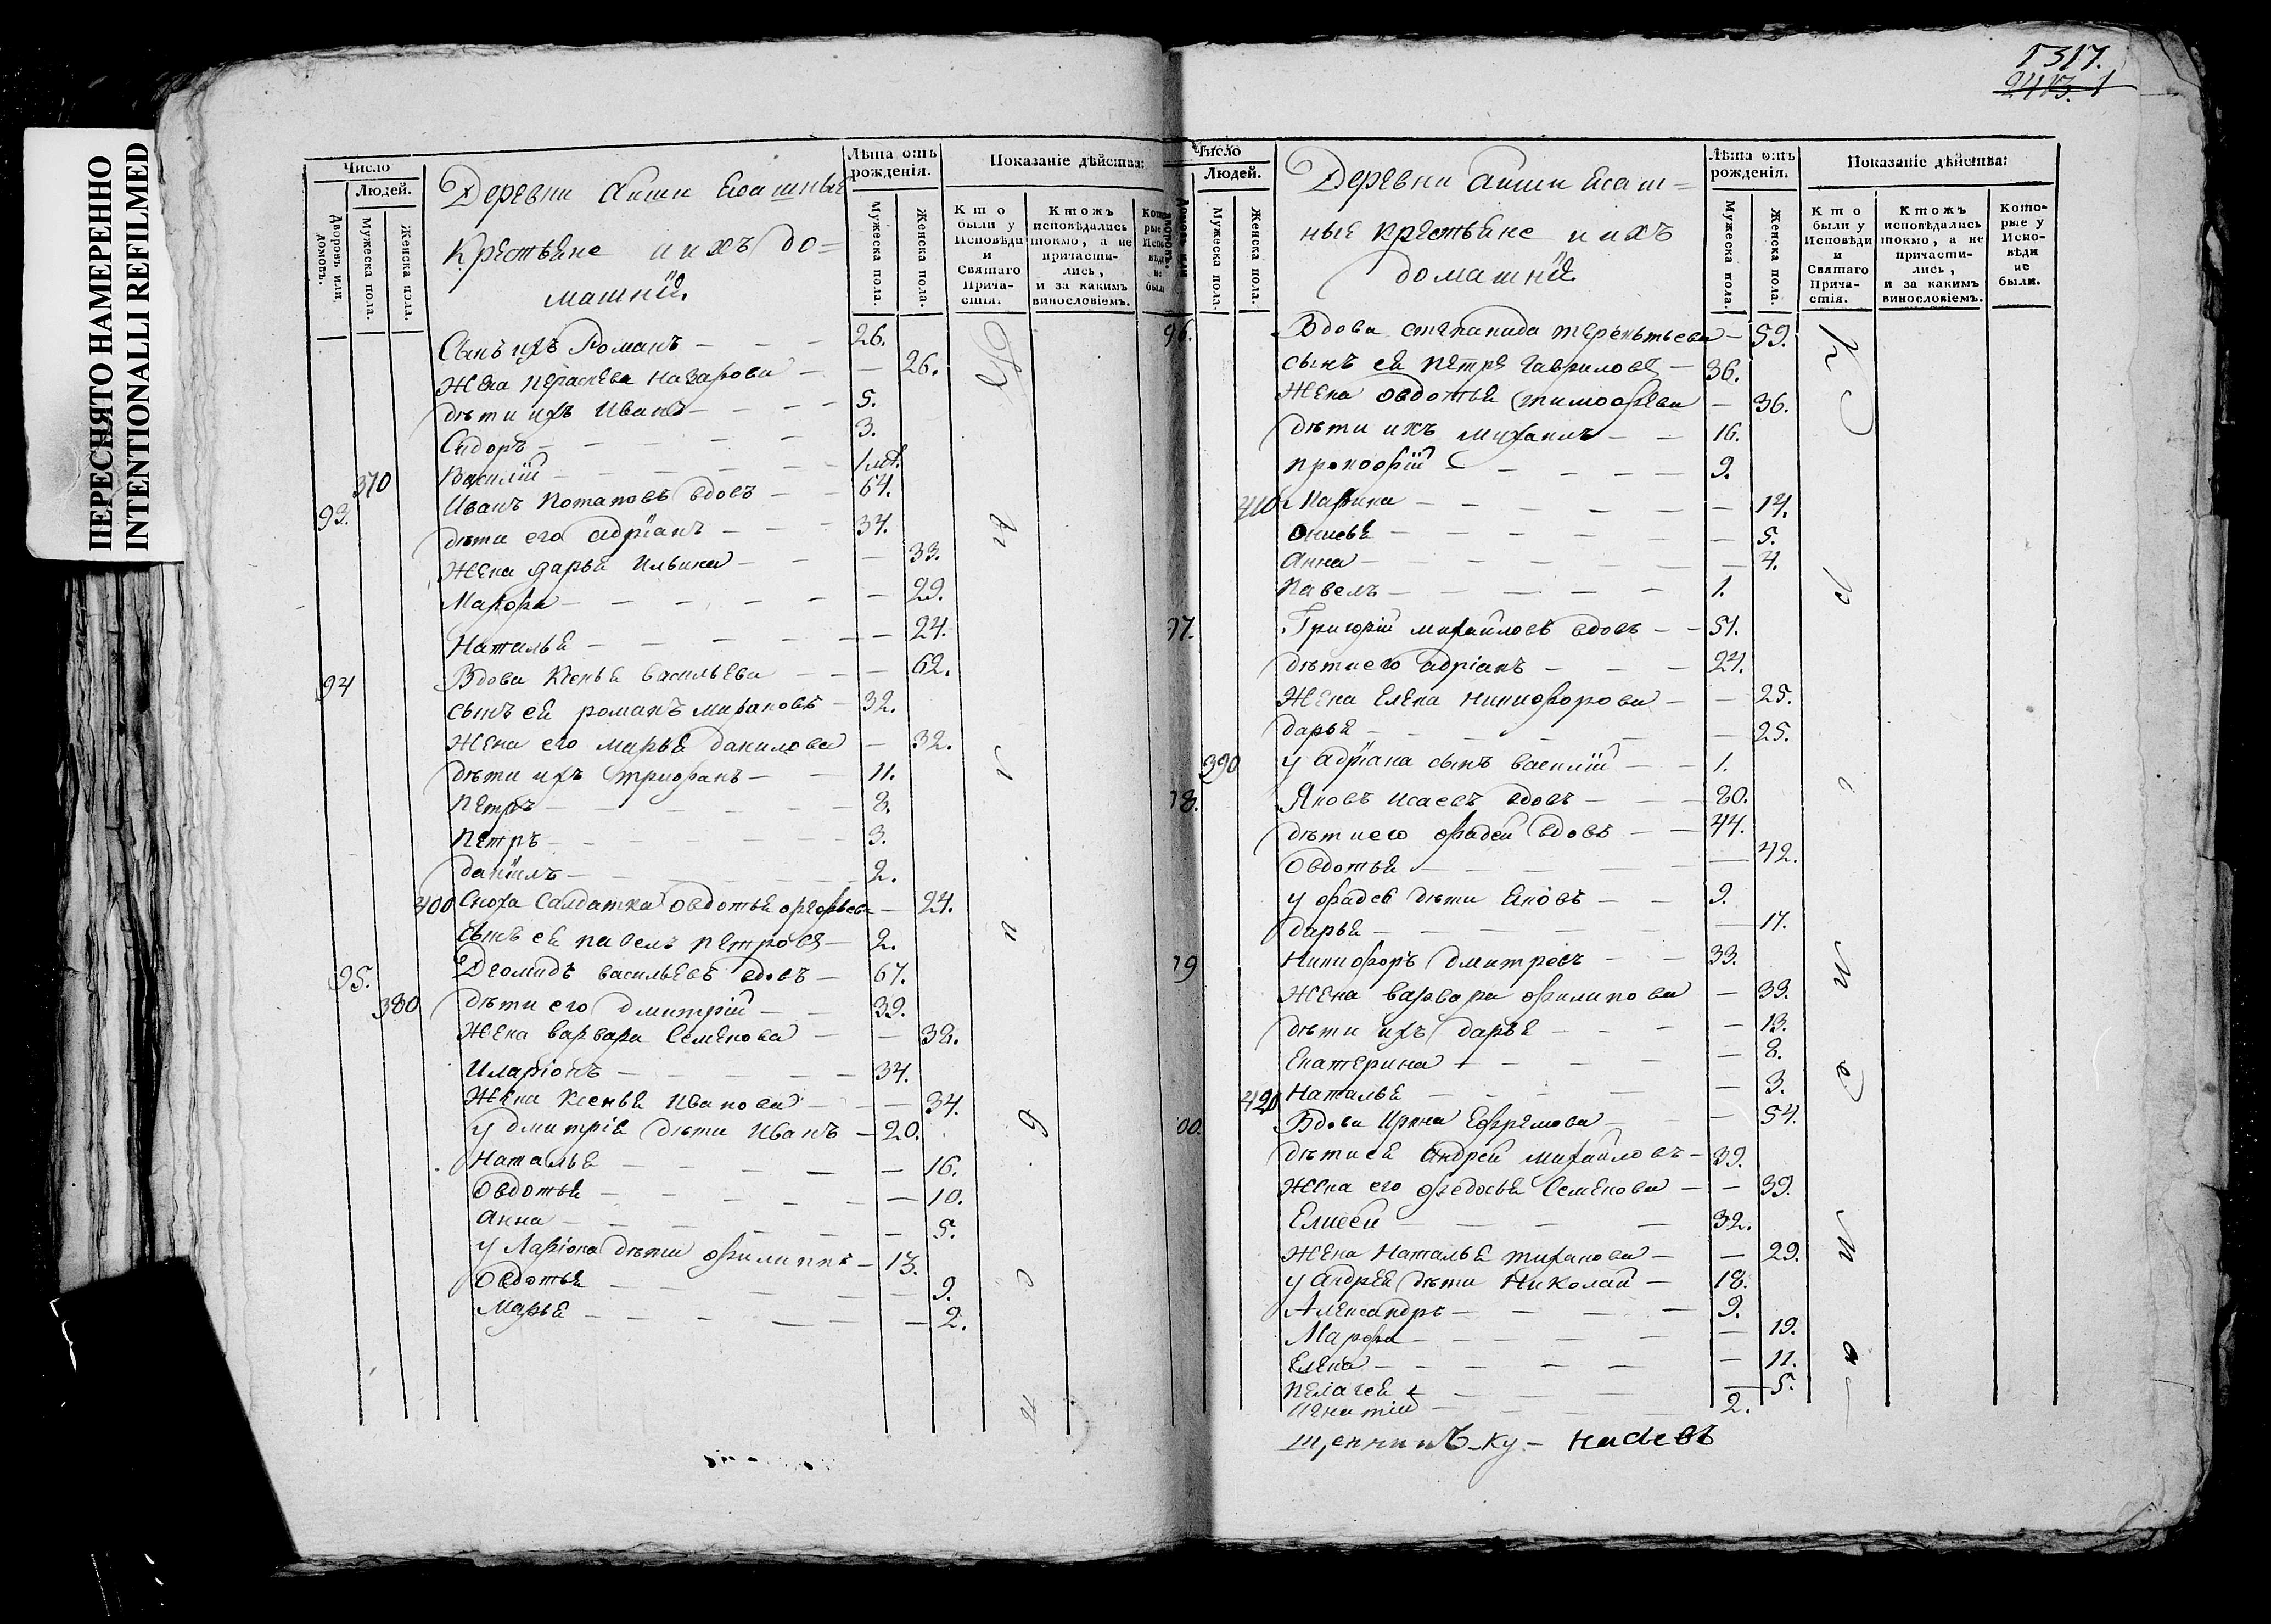 ПЕРЕСНЯТО НАМЕРЕННО
INTENTIONALLI REFILMED
Число
Людей.
Дворовъ или домовъ.
Мужеска пола.
Женска пола.
Деревни Аиши Ясашные
крестьяне и ихъ до=
машнїе.
Лѣта отъ рожденія.
Мужеска пола.
Женска пола.
Показаніе дѣйства:
Кто были у Исповѣди и Святаго Причастія.
Ктожъ исповѣдались токмо, а не причастились, и за какимъ винословіемъ.
Которые у Исповѣди не были
Сынъ ихъ Романъ 26.
Жена Пераскева Назарова 26.
дѣти ихъ Иванъ 5.
Сидоръ 3.
370 Василїй
93. Иванъ Потаповъ вдовъ 64.
дѣти его Адрїанъ 34.
Жена дарья Ильина 33.
Марфа 29.
Наталья 24.
94 Вдова Ксенья васильева 62.
сынъ ея романъ 32.
Жена его марья данилова 32.
дѣти ихъ трифанъ 11.
петръ 8.
петръ 3.
данїилъ 2.
400 Сноха Салдатка Овдотья 24.
сынъ ея павелъ петровъ 2.
95. Диомидъ васильевъ вдовъ 67.
380 дѣти его дмитрїй 39.
Жена варвара Семенова 38.
Иларїонъ 34.
Жена Ксенья Иванова 34.
у дмитрїя дѣти Иванъ 20.
Наталья 16.
Овдотья 10.
Анна 5.
у Ларїона дѣти филиппъ 13.
Овдотья 9.
Марья 2.
1317.
Число
Людей.
Мужеска пола.
Женска пола.
Деревни Аиши Ясаш=
ные крестьяне и ихъ
домашнїе.
Лѣта отъ рожденія.
Мужеска пола.
Женска пола.
Показаніе дѣйства:
Кто были у Исповѣди и Святаго Причастія.
Ктожъ исповѣдались токмо, а не причастились, и за какимъ винословіемъ.
Которые у Исповѣди не были.
96. Вдова степанида терентьева 59.
сынъ ея петръ гавриловъ 36.
Жена овдотья тимофеева 36.
дѣти ихъ михаилъ 16.
прокофїй 9.
410 Марина 14.
5.
Анна 4.
павелъ 1.
97. Григорїй михайловъ вдовъ 51.
дѣти его адрїанъ 24.
Жена Елена никифорова 25.
дарья 25.
390 у Адрїана сынъ василїй 1.
98. Яковъ исаевъ вдовъ 80.
дѣти его фадей вдовъ 44.
Овдотья 42.
у фадея дѣти Яковъ 9.
дарья 17.
99 никифоръ дмитрѣевъ 33.
Жена варвара филипова 33.
дѣти ихъ дарья 13.
Екатерина 8.
420 Наталья 3.
100. Вдова Ирина Ефремова 54.
дѣти ея Андрей михайловъ 39.
Жена его федосья Семенова 39.
Елисей 32.
Жена Наталья 29.
у Андрея дѣти Николай 18.
Александръ 9.
Марфа 19.
Елена 11.
пелагея 5.
Игнатїй 2.
щенникъ